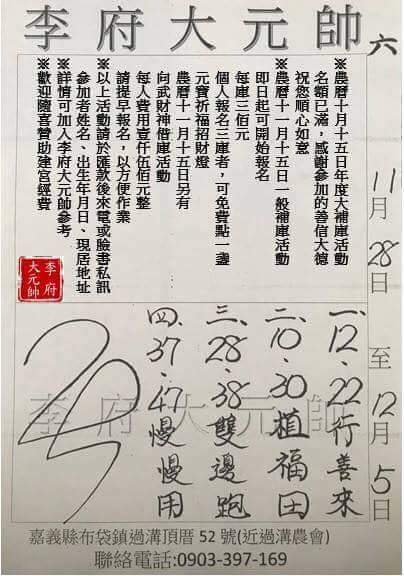 李府大元帥
六
11月28日 至 12月5日
※農曆十月十五日年度大補庫活動
名額已滿，感謝參加的善信大德
祝您順心如意
※農曆十一月十五日一般補庫活動
即日起可開始報名
每庫三佰元
個人報名三庫者，可免費點一盞
元寶祈福招財燈
農曆十一月十五日另有
向武財神借庫活動
每人費用壹仟伍佰元整
請提早報名，以方便作業
※以上活動請於匯款後來電或臉書私訊
參加者姓名、出生年月日、現居地址
※詳情可加入李府大元帥參考
※歡迎隨喜贊助建宮經費
李府
大元帥
一、12、22行善來
二、10、30植福田
三、28、38雙邊跑
四、37、47慢慢用
李府大元帥
嘉義縣布袋鎮過溝頂厝 52 號(近過溝農會)
聯絡電話:0903-397-169